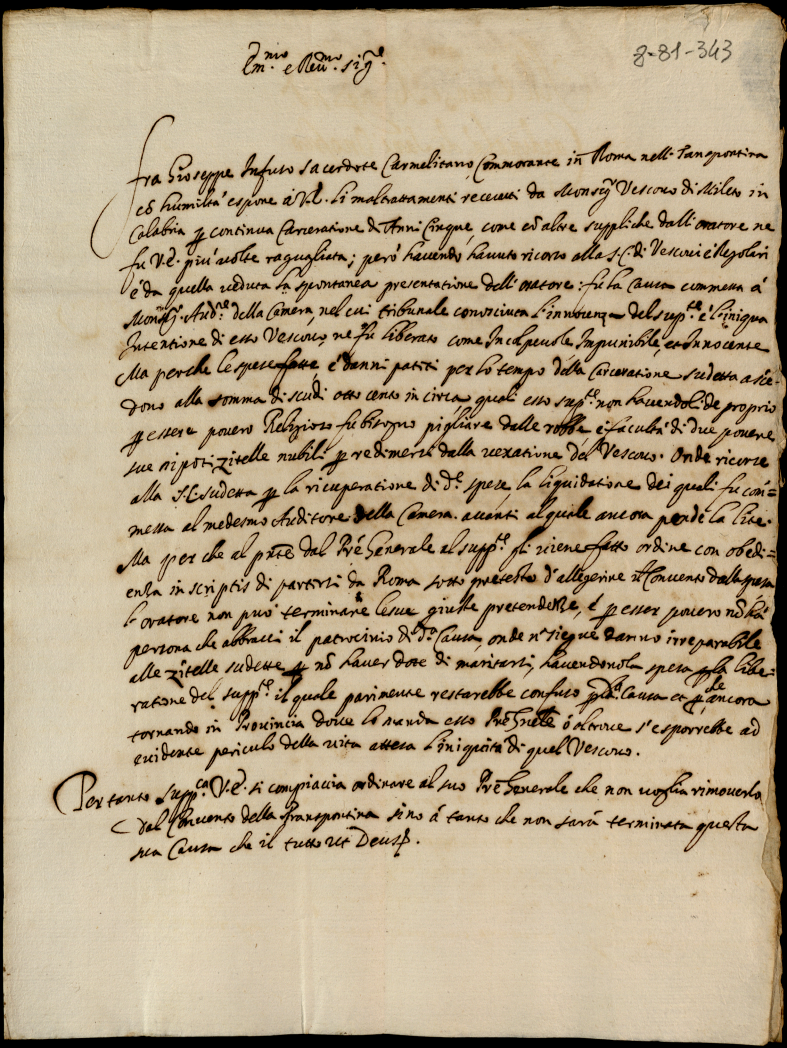 8-81-343
Em.mo e Reu.mo Sig.re
fra Gioseppe Infuso sacerdote Carmelitano Commorante in Roma nella Transpontina
cõ humiltà espone à V.E. li maltrattamenti receuuti da Monsig.r Vescouo di Mileto in
Calabria p continua Carceratione di Anni Cinque, come cõ altre suppliche dall'oratore ne
fu V.E. più uolte raguagliata; però hauendo hauuto ricorso alla S.C. di Vescoui e Regolari
è da quella ueduta la spontanea presentatione dell'oratore: fu la Causa commessa á
Monsig.r Aud.re della Camera nel cui tribunale conosciuta l'innocenza del sup.te è l'iniqua
Intentione di esso Vescouo ne fu liberato come Incolpeuole Impunibile, et Innocente
Ma perche le spese fatte, è danni patiti per lo tempo della Carceratione sudetta ascẽ-
dono alla somma di scudi otto cento in circa, quali esso sup.te non hauendoli de proprio
p essere pouero Religioso fu bisogno pigliare dalle robbe, è facultà di due pouere
sue nipoti zitelle nubili p redimersi dalla uexatione del Vescouo. Onde ricorse
alla S.C. sudetta p la ricuperatione di d.e spese, la liquidatione dei quali fu com̃=
messa al medesmo Auditore della Camera. auanti al quale ancora pende la lite.
Ma per che al pñte dal Prẽ Generale al supp.te gli uiene fatto ordine con obedi=
enza in scriptis di partirsi da Roma sotto pretesto d'allegerire il Conuento dalla spesa
l'oratore non può terminare le sue giuste pretendenze, è p esser pouero nõ hà
persona che abbracci il patrocinio di d.a Causa, onde n'siegue danno irreparabile
alle zitelle sudette p nõ hauer dote di maritarsi, hauendonola spesa p la libe-
ratione del supp.te il quale parimente restarebbe confuso p d.a Causa et p che ancora
tornando in Prouincia doue lo manda esso Prẽ Gnãle ò altroue s'esporrebbe ad
euidente periculo della uita attesa l'iniquità di quel Vescouo.
Per tanto supp.ca V.E. si compiaccia ordinare al suo Prẽ Generale che non uoglia rimouerlo
dal Conuento della Transpontina sino à tanto che non sarà terminata questa
sua Causa che il tutto ut Deus.